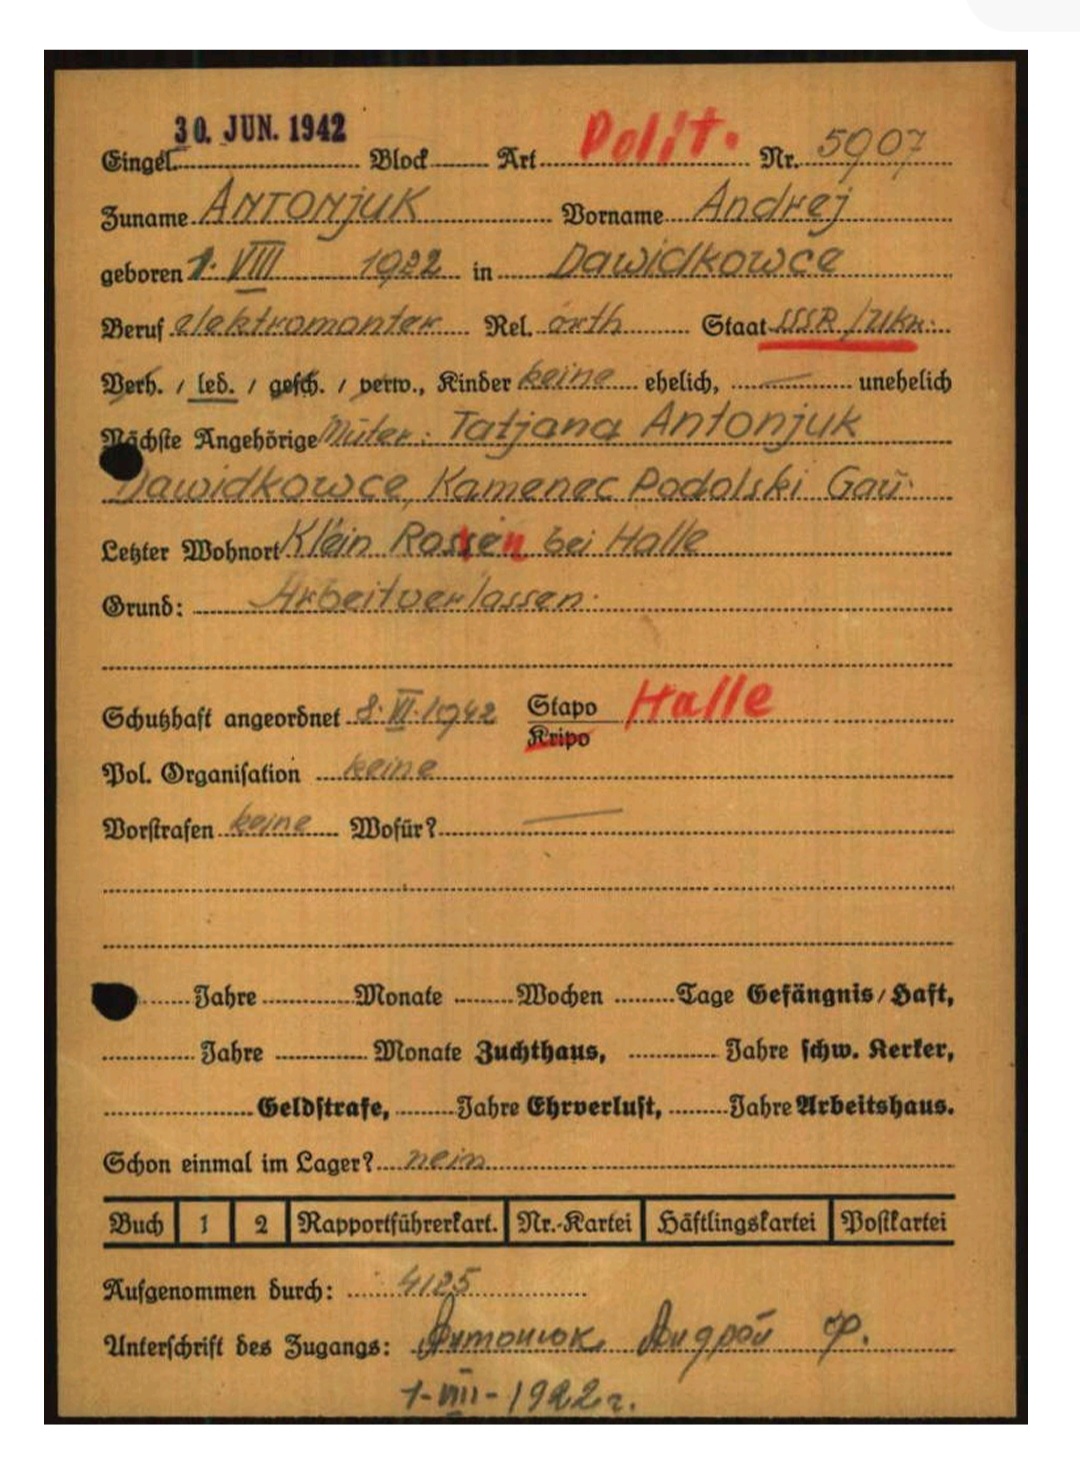 30. JUN. 1942
Eingel. Block Art Polit. Nr. 5907
Zuname Antonjuk Vorname Andrej
geboren 1. VIII 1922 in Dawidkowce
Beruf elektromonter Rel. orth Staat SSSR/Ukr.
Verh. / led. / gesch. / verw., Kinder keine ehelich, — unehelich
Nächste Angehörige Muter: Tatjana Antonjuk
Dawidkowce, Kamenec Podolski Gaŭ
Letzter Wohnort Klein Rossen bei Halle
Grund: Arbeitverlassen.
Schutzhaft angeordnet 8. VI. 1942 Stapo Halle
Kripo
Pol. Organisation keine
Vorstrafen keine Wofür? —
Jahre Monate Wochen Tage Gefängnis / Haft,
Jahre Monate Zuchthaus, Jahre schw. Kerker,
Geldstrafe, Jahre Ehrverlust, Jahre Arbeitshaus.
Schon einmal im Lager? nein
Buch 1 2 Rapportführerkart. Nr.-Kartei Häftlingskartei Postkartei
Aufgenommen durch: 4125
Unterschrift des Zugangs: Антонюк Андрей Ф.
1-VIII-1922 г.